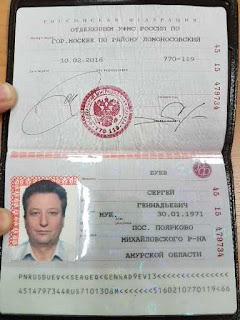 РОССИЙСКАЯ ФЕДЕРАЦИЯ
ОТДЕЛЕНИЕМ УФМС РОССИИ ПО
ГОР. МОСКВЕ ПО РАЙОНУ ЛОМОНОСОВСКИЙ
10.02.2016 770-119
45 15 479734
БУЕВ
СЕРГЕЙ
ГЕННАДЬЕВИЧ
МУЖ. 30.01.1971
ПОС. ПОЯРКОВО
МИХАЙЛОВСКОГО Р-НА
АМУРСКОЙ ОБЛАСТИ
45 15 479734
4514797344RUS7101306M<<<<<<<5160210770119<66